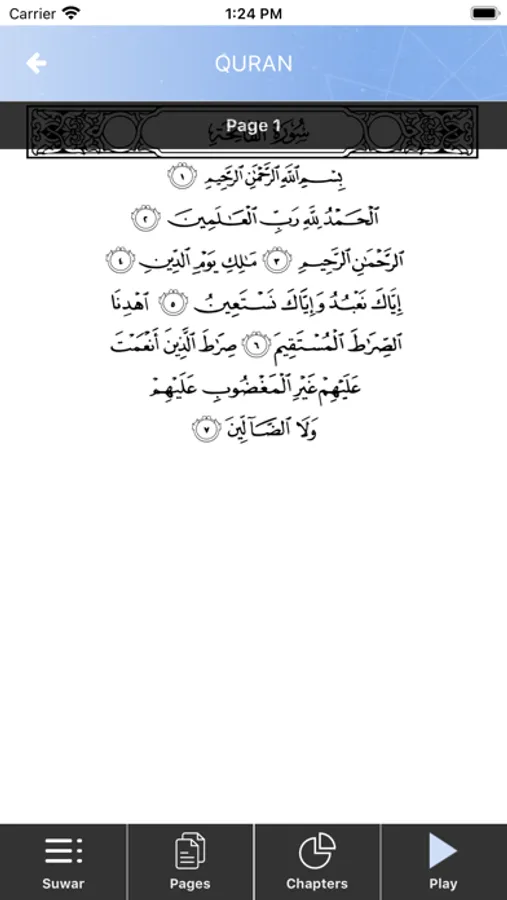 Carrier 1:24 PM
QURAN
سُورَةُ الفَاتِحَةِ
Page 1
بِسْمِ ٱللَّهِ ٱلرَّحْمَٰنِ ٱلرَّحِيمِ ١
ٱلْحَمْدُ لِلَّهِ رَبِّ ٱلْعَٰلَمِينَ ٢
ٱلرَّحْمَٰنِ ٱلرَّحِيمِ ٣ مَٰلِكِ يَوْمِ ٱلدِّينِ ٤
إِيَّاكَ نَعْبُدُ وَإِيَّاكَ نَسْتَعِينُ ٥ ٱهْدِنَا
ٱلصِّرَٰطَ ٱلْمُسْتَقِيمَ ٦ صِرَٰطَ ٱلَّذِينَ أَنْعَمْتَ
عَلَيْهِمْ غَيْرِ ٱلْمَغْضُوبِ عَلَيْهِمْ
وَلَا ٱلضَّآلِّينَ ٧
Suwar
Pages
Chapters
Play